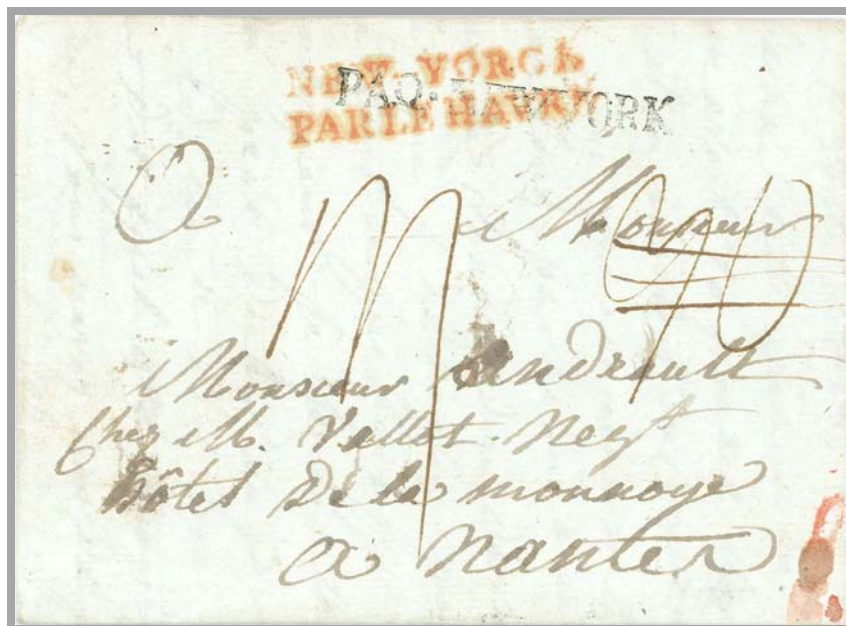 NEW-YORCK
PAQ. NEW YORK
PAR LE HAVRE
A Monsieur
Monsieur Andrault
Chez M. Vallet. Negt
hôtel de la monnoye
a Nantes